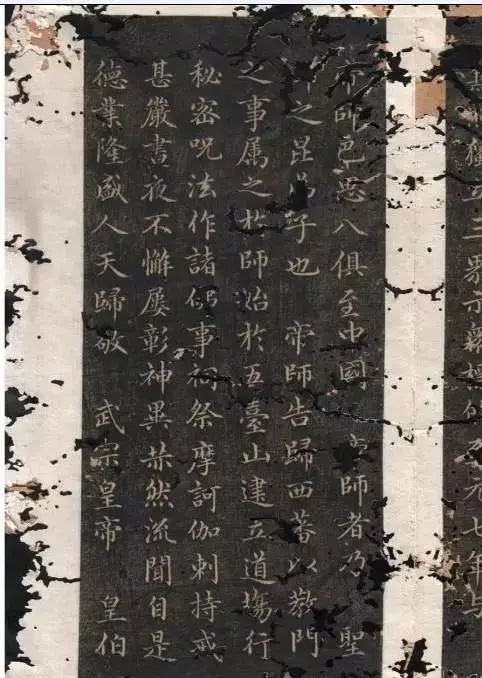 獨立三界示眾標的至元七年與
帝師巴思八俱至中國 帝師者乃 聖
師之昆弟子也 帝師告歸西蕃以教門
之事属之於師始於五臺山建立道場行
秘密呪法作諸佛事祠祭摩訶伽剌持戒
甚嚴晝夜不懈屢彰神異赫然流聞自是
德業隆盛人天歸敬 武宗皇帝 皇伯